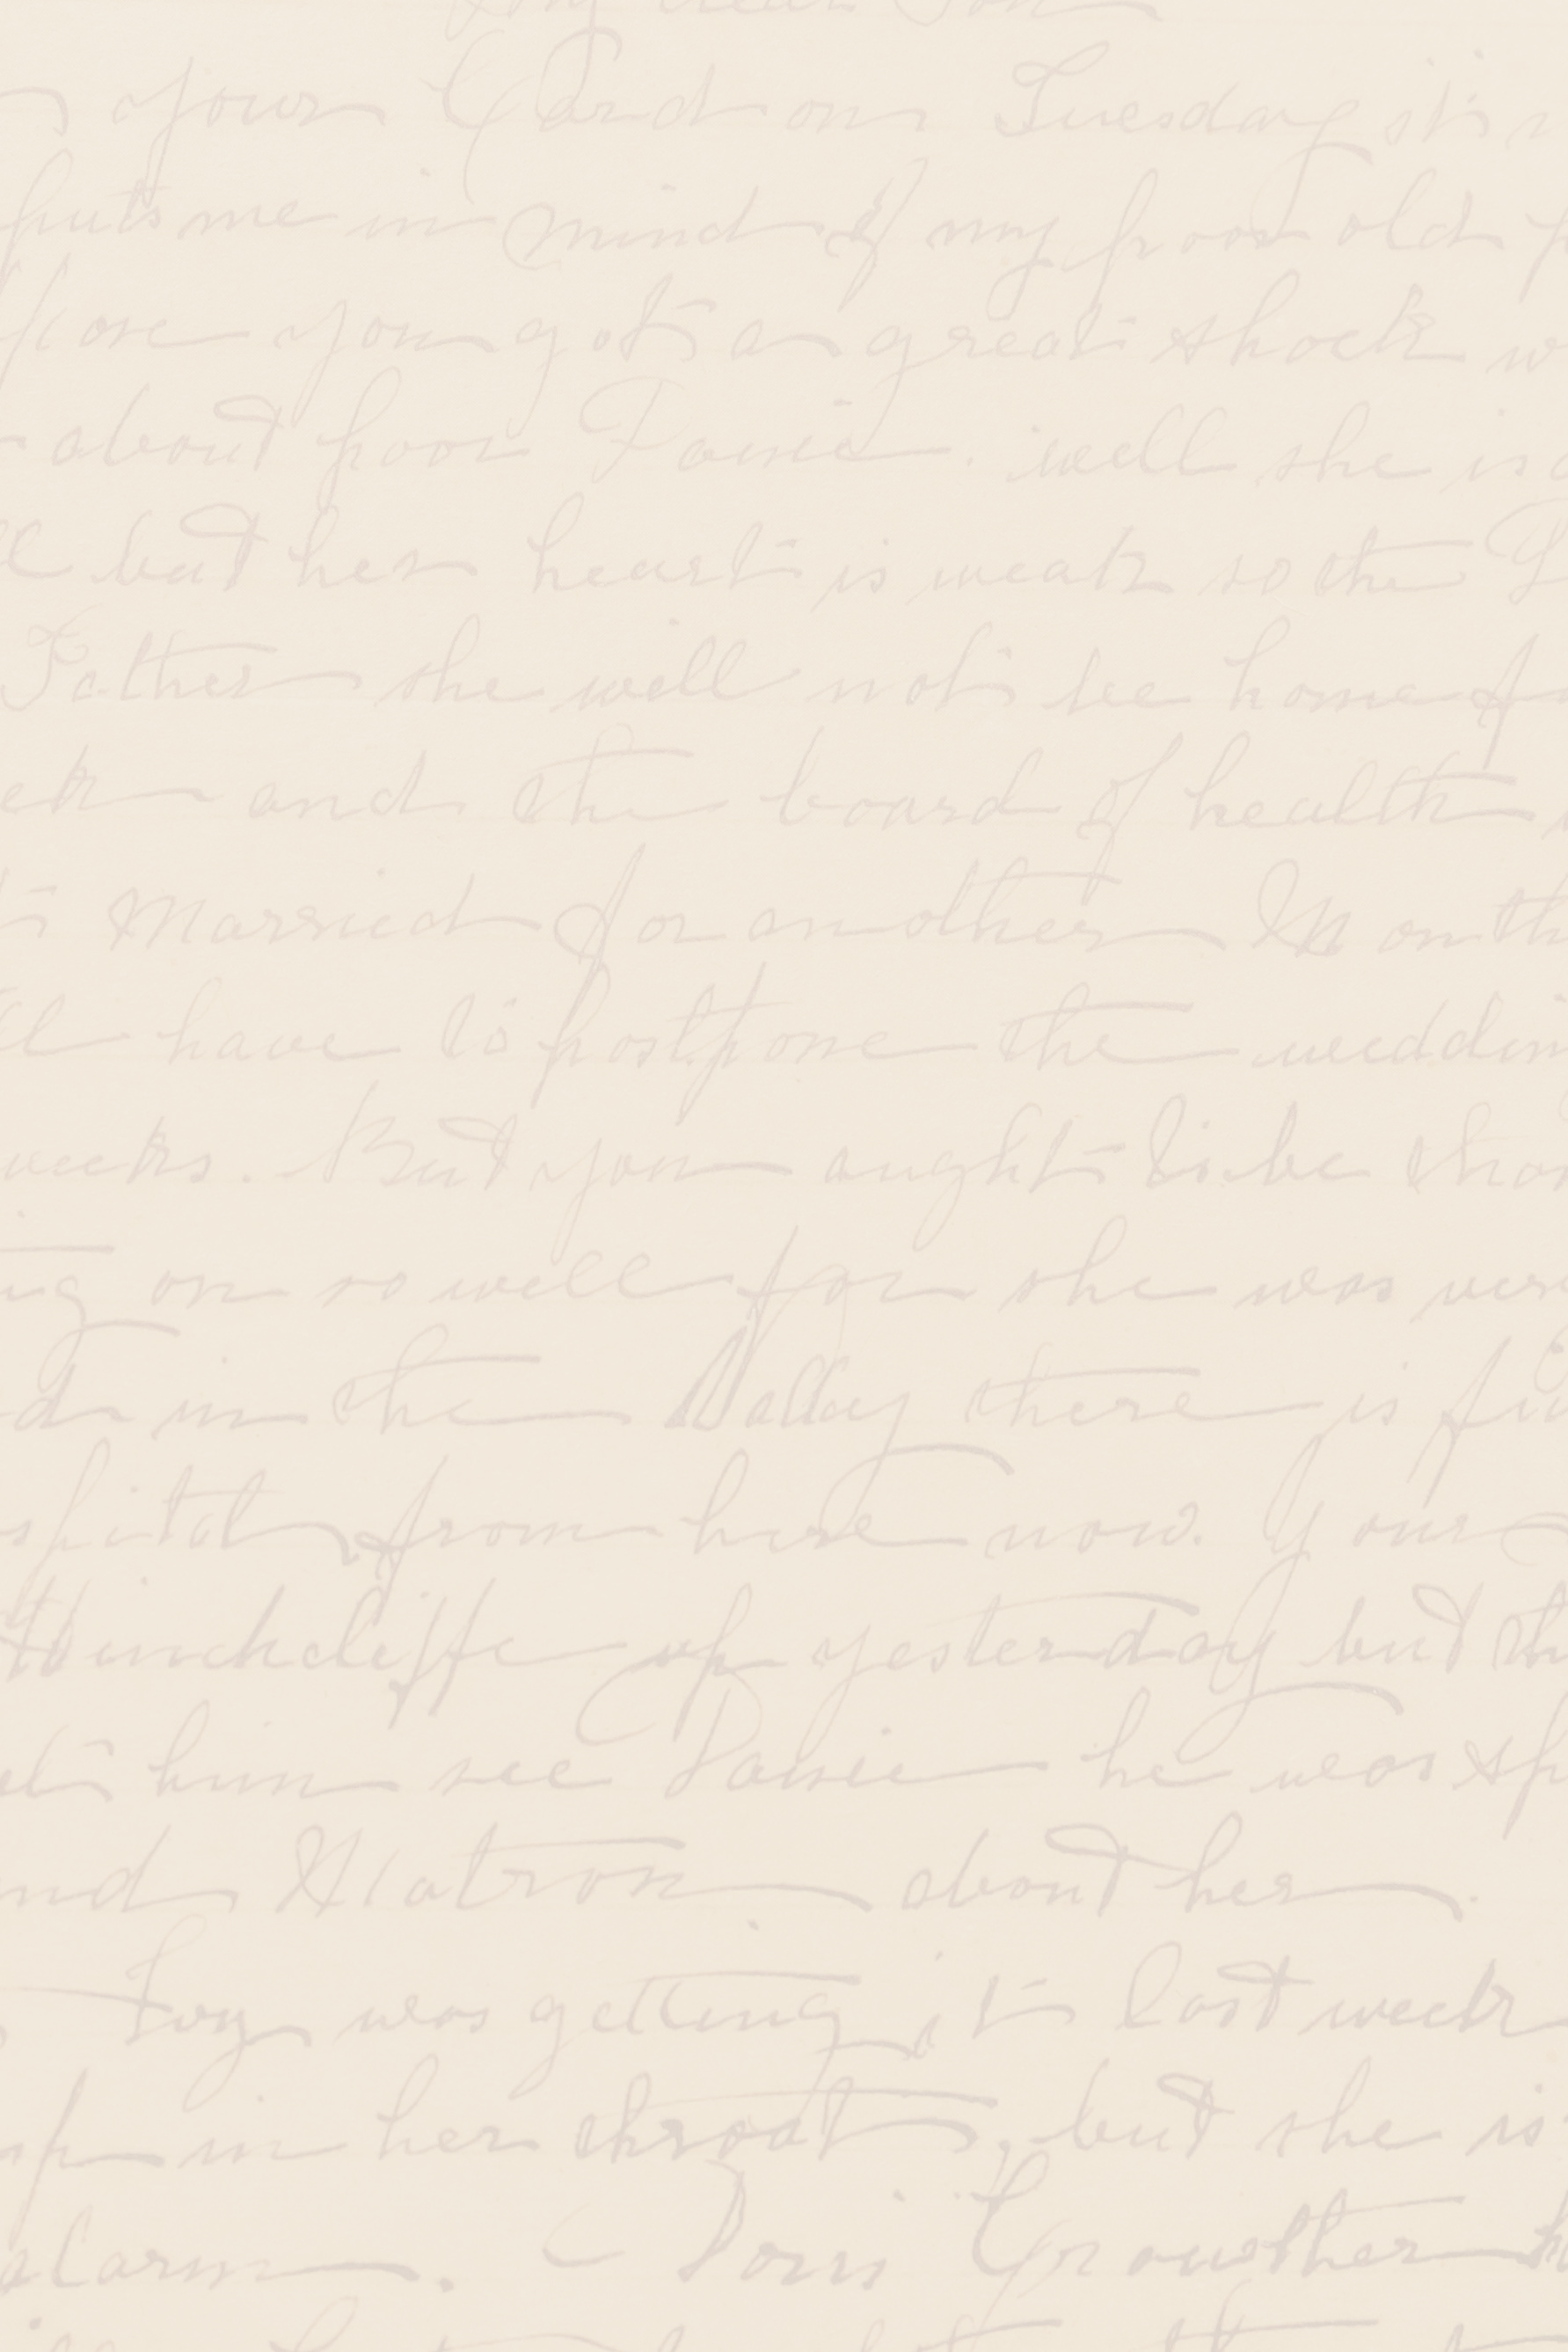 My dear Son
your Card on Tuesday it's
puts me in mind of my poor old
you got a great shock
about poor Janie. well she is
but her heart is weak so the
Father she will not be home
and the board of health
Married for another Month
have to postpone the weddin
weeks. But you aught to be than
on so well for she was ver
in the Valley there is
spital from here now. Your
Hinchcliffe up yesterday but th
him see Janie he was sp
nd Matron about her.
Ivy was getting it last week
in her throat, but she is
alarm. Doris Crowther